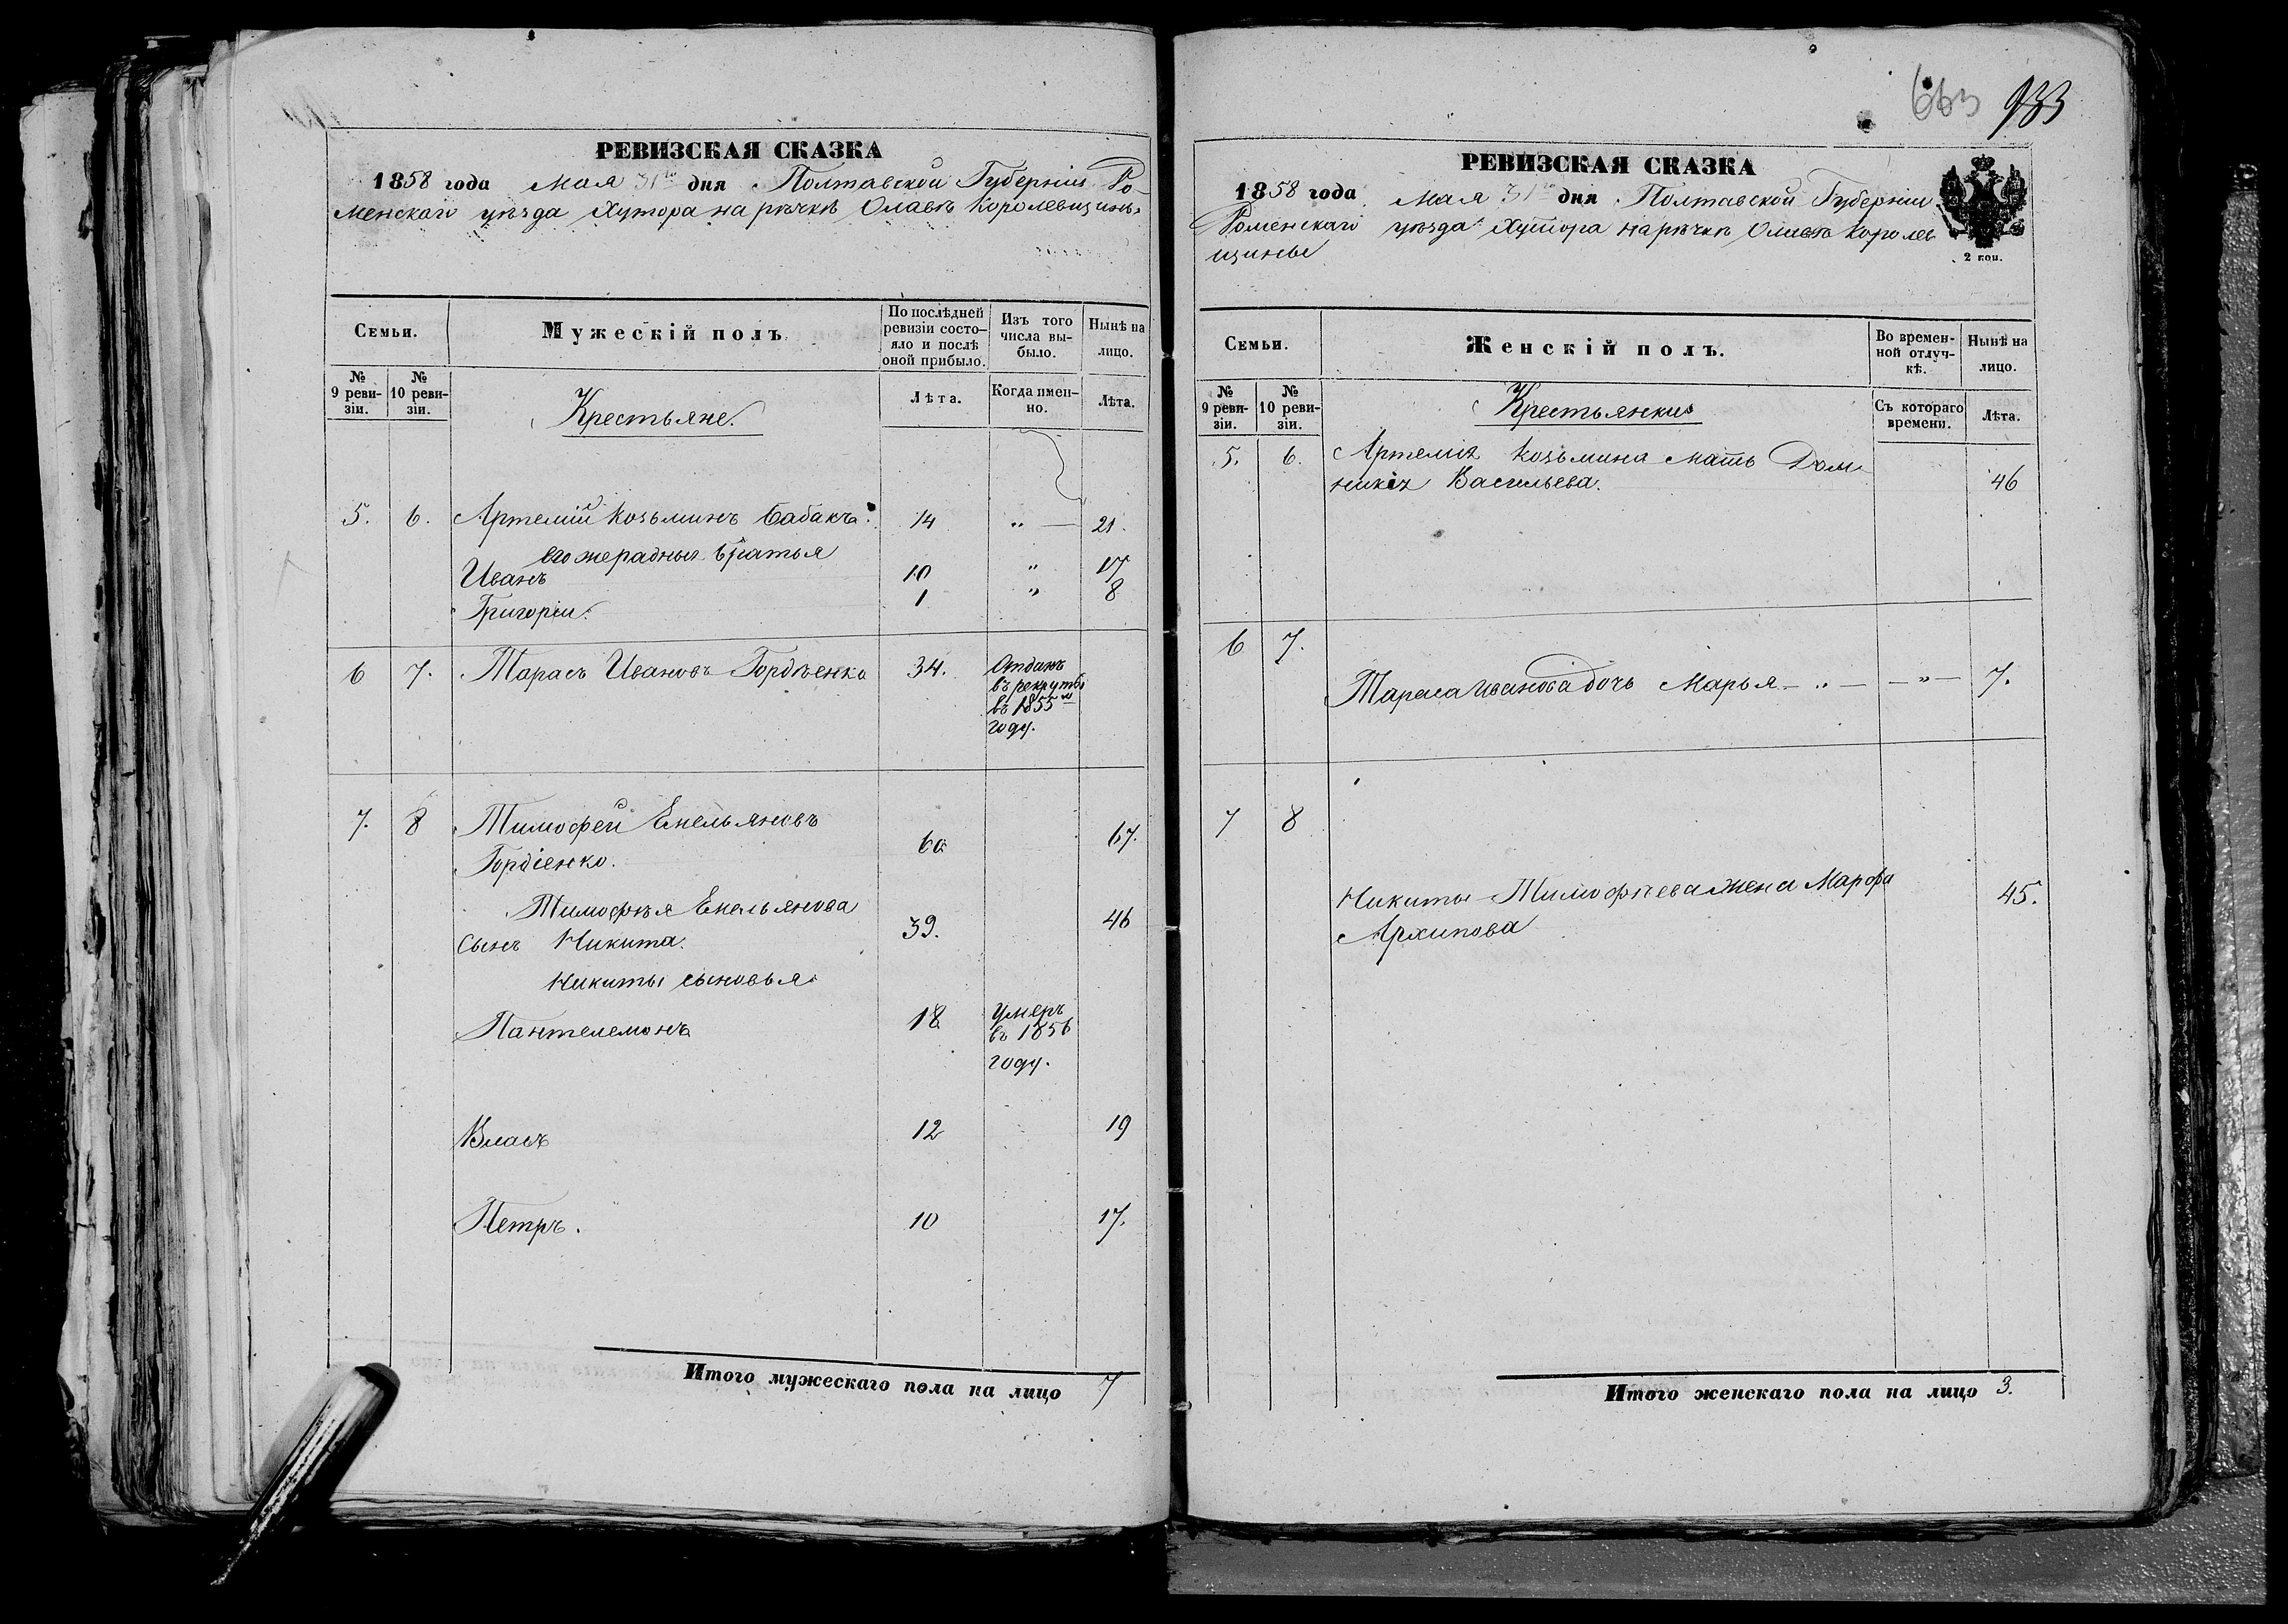 РЕВИЗСКАЯ СКАЗКА
1858 года Мая 31го дня Полтавской Губерніи Ро-
менскаго уѣзда Хутора на рѣчкѣ Олавѣ Королевщины
Семьи.
Мужескій полъ.
По послѣдней ревизіи состо-яло и послѣ оной прибыло.
Изъ того числа вы-было.
Нынѣ на лицо.
№ 9 реви-зіи.
№ 10 реви-зіи.
Крестьяне.
Лѣта.
Когда имен-но.
Лѣта.
5. 6. Артемій Козьминъ Бабакъ. 14 „ — 21.
его жерадныя братья
Иванъ 10 „ 17
Григоріи. 1 „ 8
6 7. Тарасъ Ивановъ Гордѣенко 34. Отданъ
въ рекруты
въ 1855м
году.
7. 8 Тимофей Емельяновъ
Гордіенко. 60 67.
Тимофѣя Емельянова
Сынъ Никита. 39. 46
Никиты сыновья
Пантелемонъ 18 умеръ
въ 1856
году.
Власъ 12 19
Петръ. 10 17.
Итого мужескаго пола на лицо 7
663 933
РЕВИЗСКАЯ СКАЗКА
1858 года Мая 31го дня Полтавской Губерніи
Роменскаго уѣзда Хутора на рѣчкѣ Олавѣ Королев
щины
2 коп.
Семьи.
Женскій полъ.
Во времен-ной отлуч-кѣ.
Нынѣ на лицо.
№ 9 реви-зіи.
№ 10 реви-зіи.
Крестьянки
Съ котораго времени.
Лѣта.
5. 6. Артемія Козьмина мать Дом-
никія Васильева. 46
6 7.
Тараса Иванова дочь Марья — „ — — „ — 7.
7 8
Никиты Тимофѣева жена Марфа 45.
Архипова
Итого женскаго пола на лицо 3.